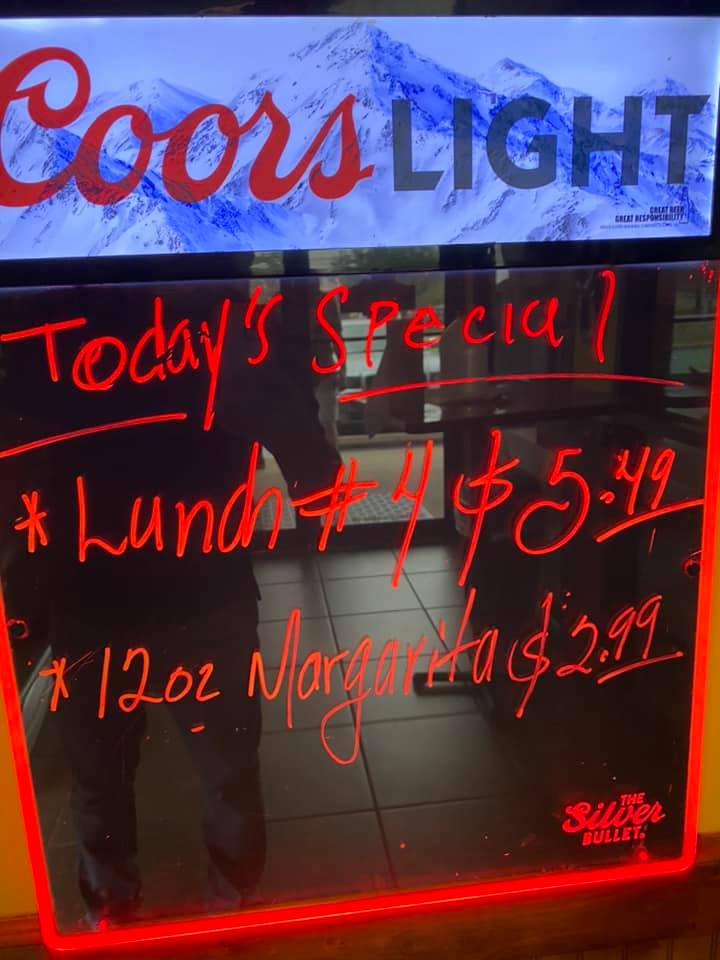 Coors LIGHT
GREAT BEER
GREAT RESPONSIBILITY
Today's Special
* Lunch # 4 $ 5.49
* 12oz Margarita $ 2.99
THE
Silver
BULLET.